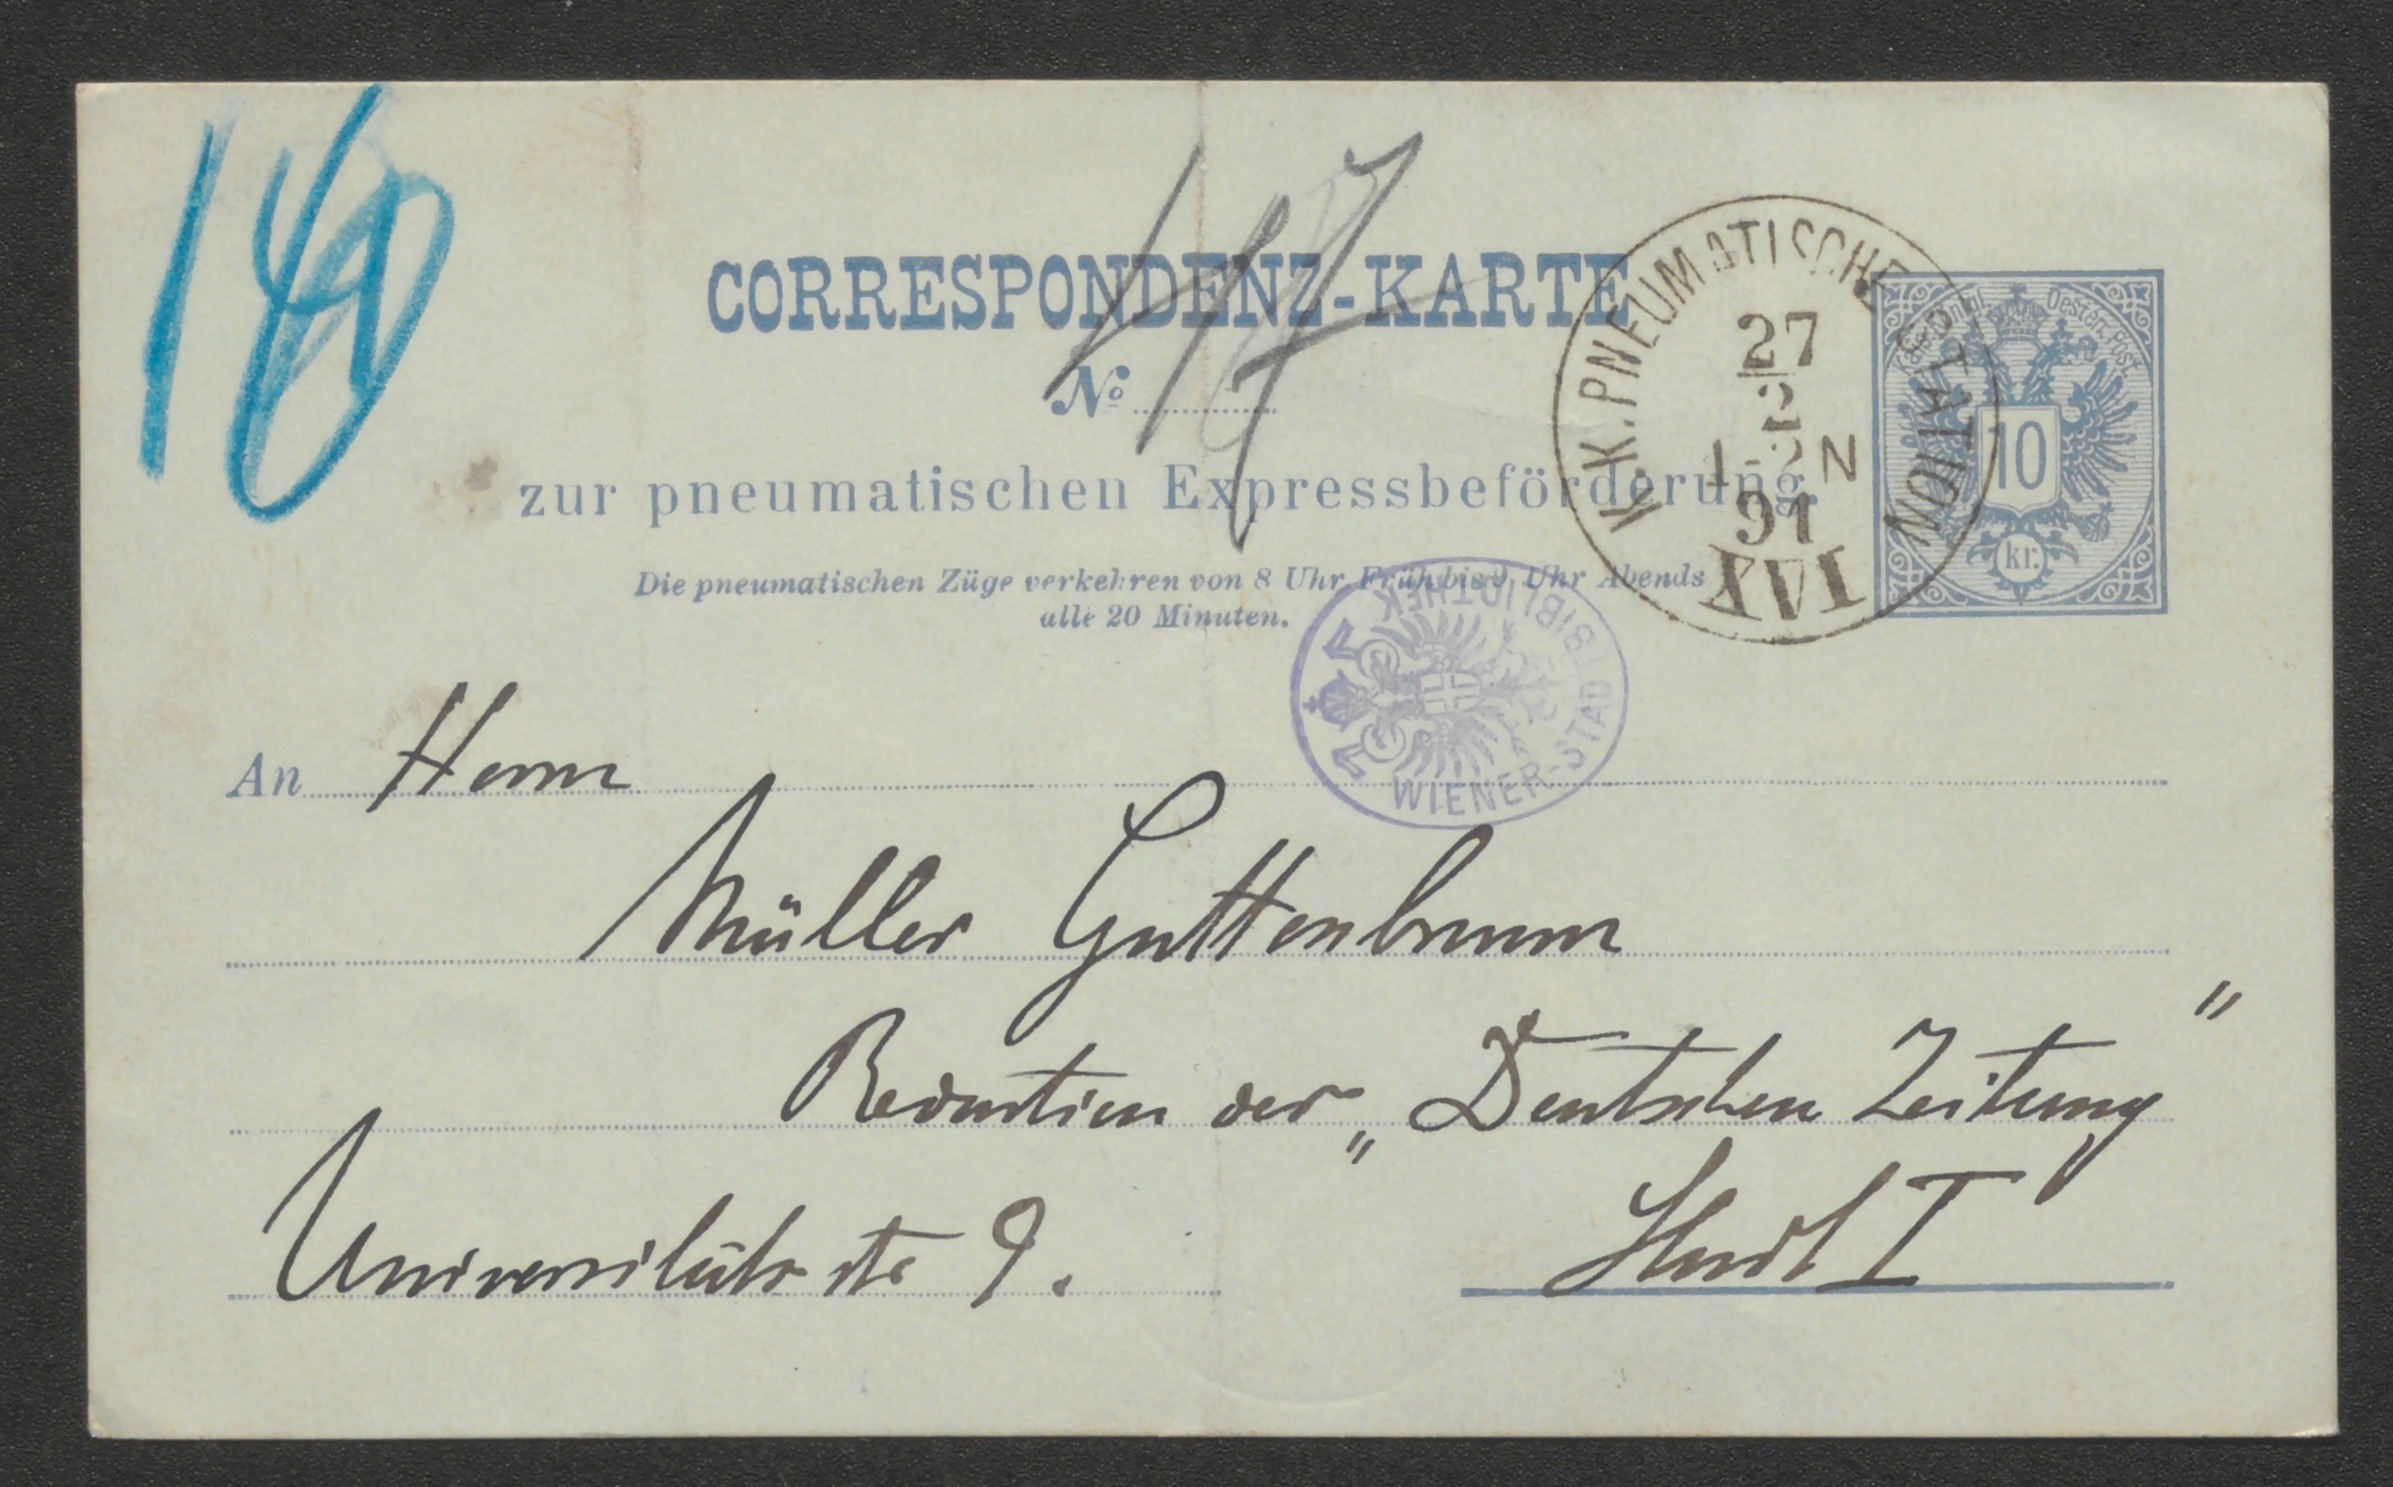 CORRESPONDENZ-KARTE
No
zur pneumatischen Expressbeförderung.
Die pneumatischen Züge verkehren von 8 Uhr Früh bis 9 Uhr Abends
alle 20 Minuten.
K.K. PNEUMATISCHE STATION
27
2
N
91
XVI
Kais. Königl. Oesterr. Post.
10
kr.
WIENER-STADTBIBLIOTHEK
An Herrn
Müller Guttenbrunn
Redaction der „Deutschen Zeitung"
Universitätsstr 9. Stadt I